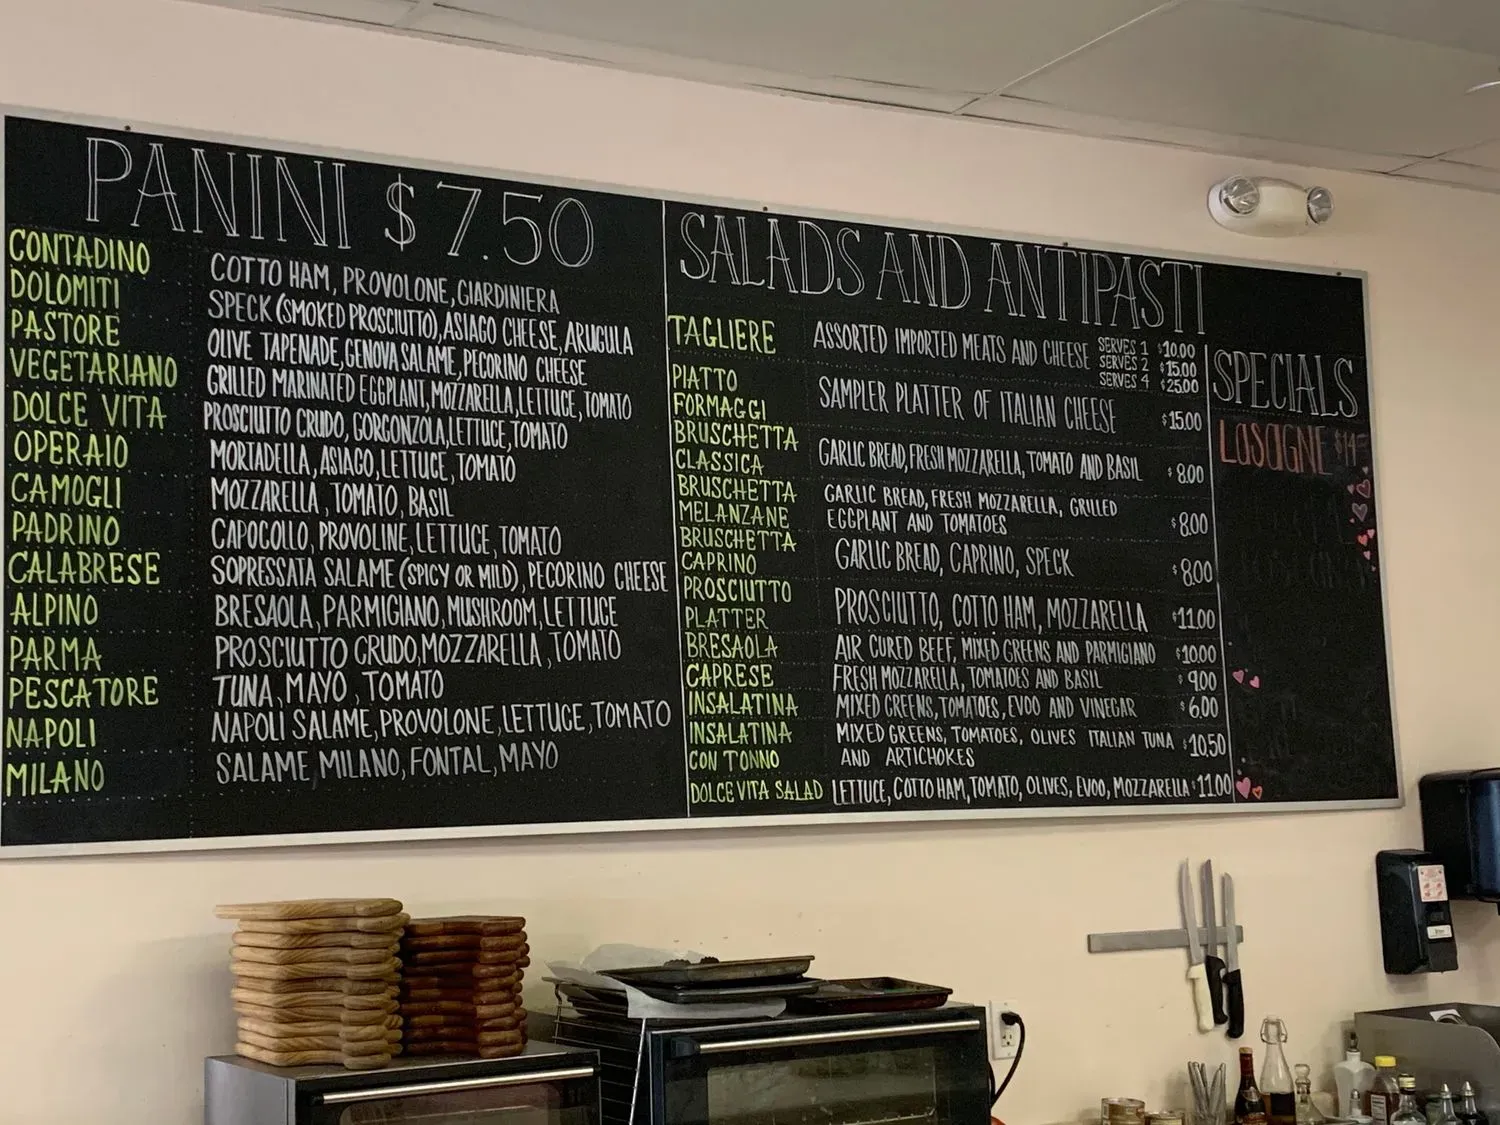 PANINI $7.50
CONTADINO COTTO HAM, PROVOLONE, GIARDINIERA
DOLOMITI SPECK (SMOKED PROSCIUTTO), ASIAGO CHEESE, ARUGULA
PASTORE OLIVE TAPENADE, GENOVA SALAME, PECORINO CHEESE
VEGETARIANO GRILLED MARINATED EGGPLANT, MOZZARELLA, LETTUCE, TOMATO
DOLCE VITA PROSCIUTTO CRUDO, GORGONZOLA, LETTUCE, TOMATO
OPERAIO MORTADELLA, ASIAGO, LETTUCE, TOMATO
CAMOGLI MOZZARELLA, TOMATO, BASIL
PADRINO CAPOCOLLO, PROVOLINE, LETTUCE, TOMATO
CALABRESE SOPRESSATA SALAME (SPICY OR MILD), PECORINO CHEESE
ALPINO BRESAOLA, PARMIGIANO, MUSHROOM, LETTUCE
PARMA PROSCIUTTO CRUDO, MOZZARELLA, TOMATO
PESCATORE TUNA, MAYO, TOMATO
NAPOLI NAPOLI SALAME, PROVOLONE, LETTUCE, TOMATO
MILANO SALAME MILANO, FONTAL, MAYO
SALADS AND ANTIPASTI
TAGLIERE ASSORTED IMPORTED MEATS AND CHEESE SERVES 1 $10.00
SERVES 2 $15.00
SERVES 4 $25.00
PIATTO
FORMAGGI SAMPLER PLATTER OF ITALIAN CHEESE $15.00
BRUSCHETTA
CLASSICA GARLIC BREAD, FRESH MOZZARELLA, TOMATO AND BASIL $8.00
BRUSCHETTA GARLIC BREAD, FRESH MOZZARELLA, GRILLED
MELANZANE EGGPLANT AND TOMATOES $8.00
BRUSCHETTA
CAPRINO GARLIC BREAD, CAPRINO, SPECK $8.00
PROSCIUTTO
PLATTER PROSCIUTTO, COTTO HAM, MOZZARELLA $11.00
BRESAOLA AIR CURED BEEF, MIXED GREENS AND PARMIGIANO $10.00
CAPRESE FRESH MOZZARELLA, TOMATOES AND BASIL $9.00
INSALATINA MIXED GREENS, TOMATOES, EVOO AND VINEGAR $6.00
INSALATINA MIXED GREENS, TOMATOES, OLIVES ITALIAN TUNA $10.50
CON TONNO AND ARTICHOKES
DOLCE VITA SALAD LETTUCE, COTTO HAM, TOMATO, OLIVES, EVOO, MOZZARELLA $11.00
SPECIALS
LASAGNE $14